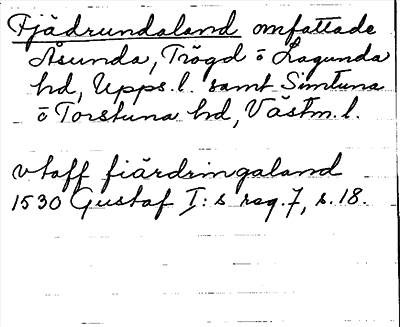 Fjädrundaland omfattade
Åsunda, Trögd o Lagunda
hd, Upps. l. samt Simtuna
o Torstuna hd, Västm. l.
vtaff fiärdringaland
1530 Gustaf I:s reg. 7, s. 18.